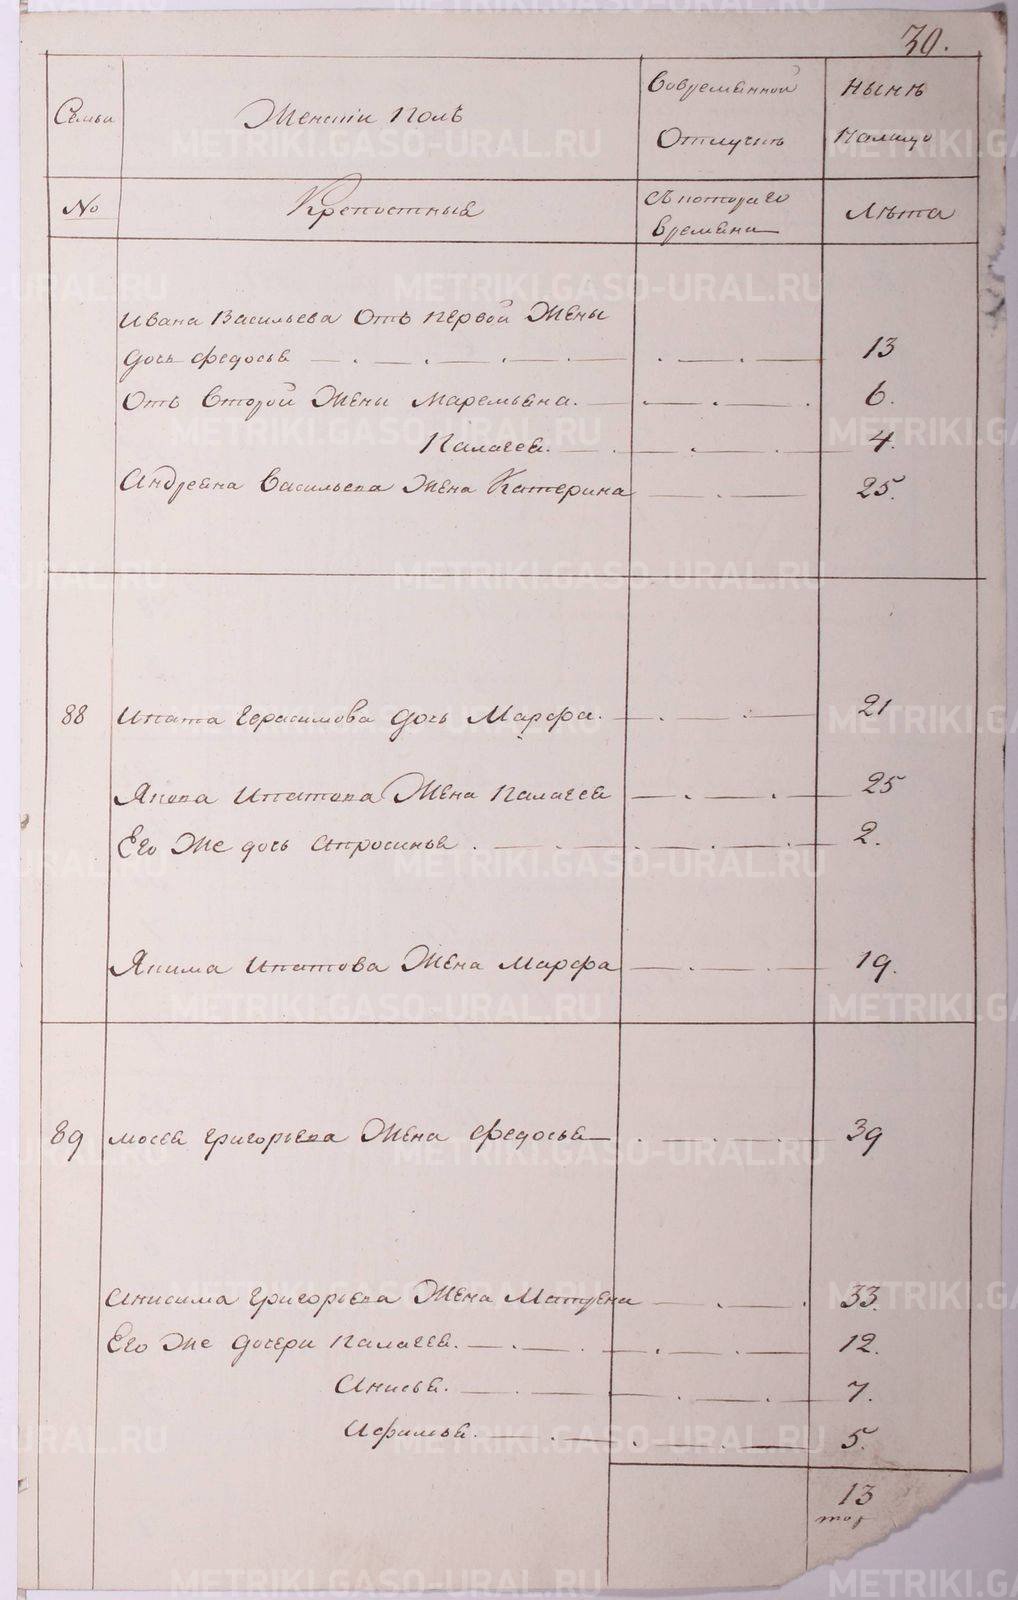 30.
Семьи
Женскiй полъ
Вовременной
Отлучкѣ
Нынѣ
Налицо
No
Крепостныя
Съ котораго
Времени
Лѣта
Ивана Васильева Отъ первой Жены
дочь Федосья 13
Отъ Второй Жены Маремьяна. 6.
Палагея. 4.
Андреяна Васильева Жена Катерина 25.
88 Ипата Герасимова дочь Марфа. 21
Якова Ипатова Жена Палагея 25
Его Же дочь Апросинья. 2.
Якима Ипатова Жена Марфа 19.
89 Мосея Григорьева Жена Федосья 39
Анисима Григорьева Жена Матрена 33.
Его Же дочери Палагея. 12.
Анисья. 7.
Афимья. 5.
13
METRIKI.GASO-URAL.RU